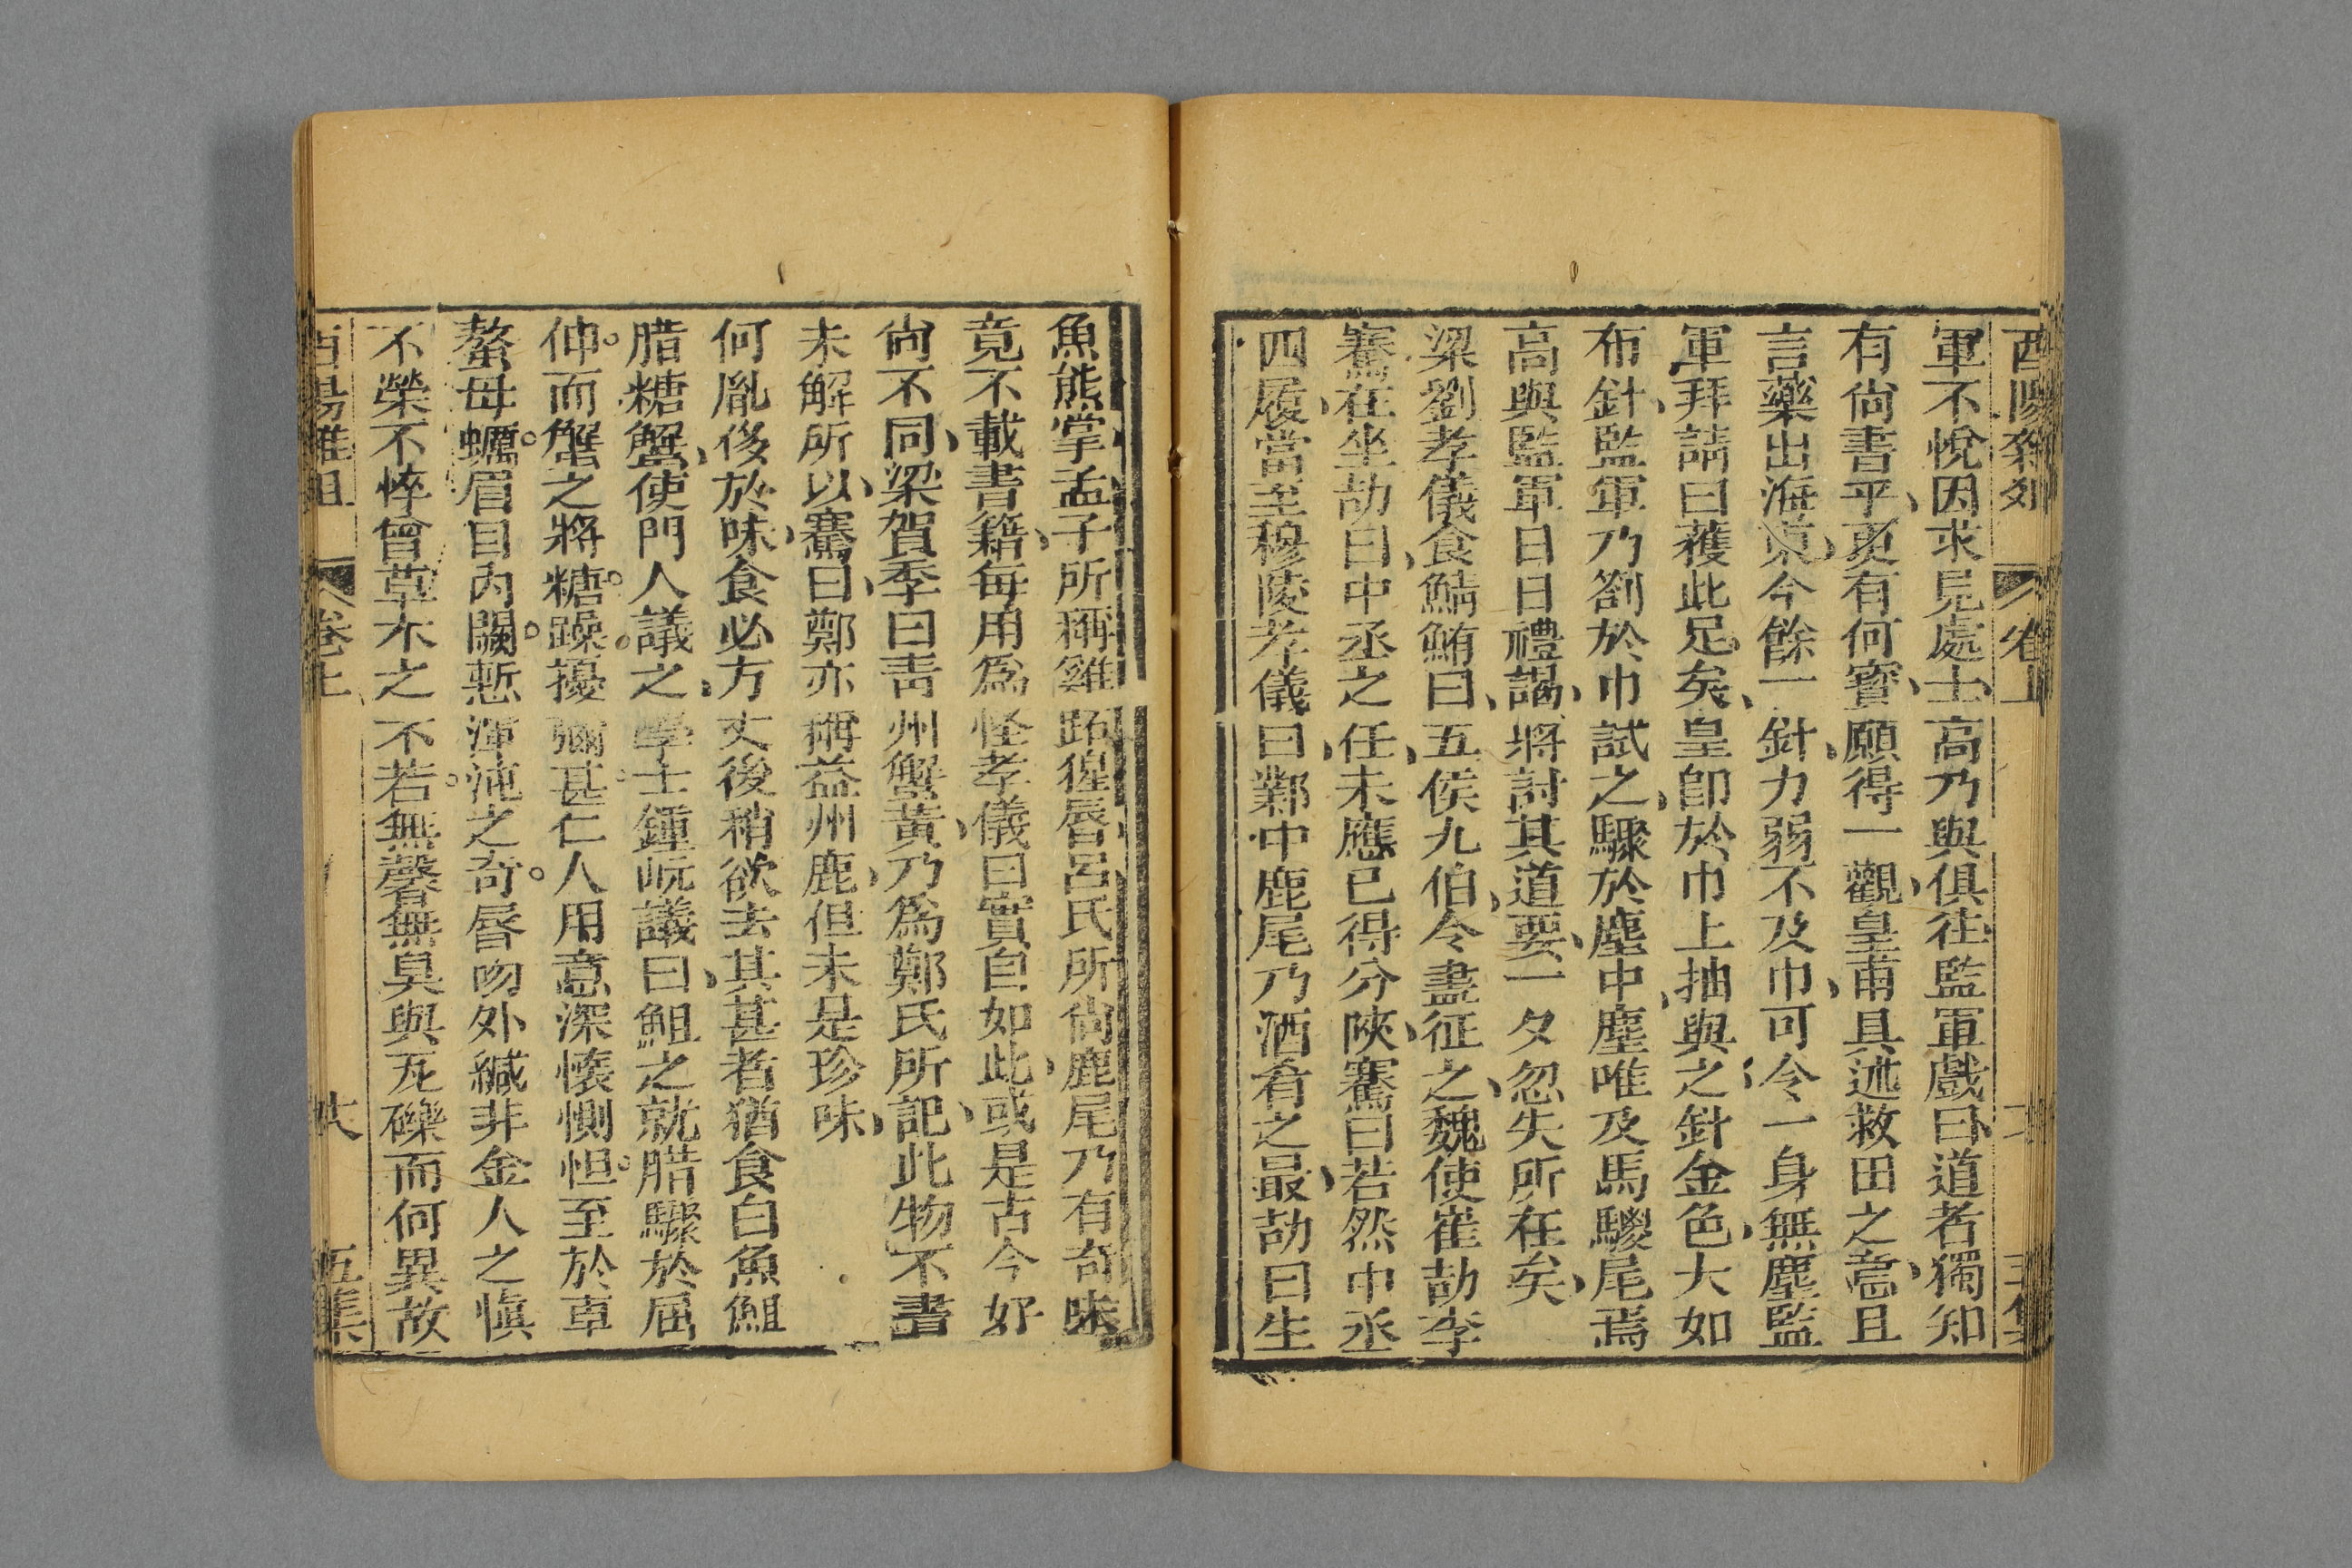 酉陽雜俎 卷上 五集
軍不悅因求見處士高乃與俱往監軍戲曰道者獨知
有尙書乎更有何寶願得一觀皇甫具述救田之意且
言藥出海東今餘一針力弱不及巾可令一身無塵監
軍拜請曰獲此足矣皇卽於巾上抽與之針金色大如
布針監軍乃劄於巾試之驟於塵中塵唯及馬騣尾焉
高與監軍日日禮謁將討其道要一夕忽失所在矣
梁劉孝儀食鯖鮪曰五侯九伯令盡征之魏使崔劼李
騫在坐劼曰中丞之任未應已得分陝騫曰若然中丞
四履當至穆陵孝儀曰鄴中鹿尾乃酒肴之最劼曰生
魚熊掌孟子所稱雞跖猩唇呂氏所尙鹿尾乃有奇味
竟不載書籍每用爲怪孝儀曰實自如此或是古今好
尙不同梁賀季曰靑州蟹黃乃爲鄭氏所記此物不書
未解所以騫曰鄭亦稱益州鹿但未是珍味
何胤侈於味食必方丈後稍欲去其甚者猶食白魚䱉
腊糖蟹使門人議之學士鍾岏議曰䱉之就腊驟於屈
伸而蟹之將糖躁擾彌甚仁人用意深懷惻怛至於車
螯母蠣眉目內闕慙渾沌之奇唇吻外緘非金人之愼
不榮不悴曾草木之不若無馨無臭與瓦礫而何異故
酉陽雜俎 卷上 六 五集